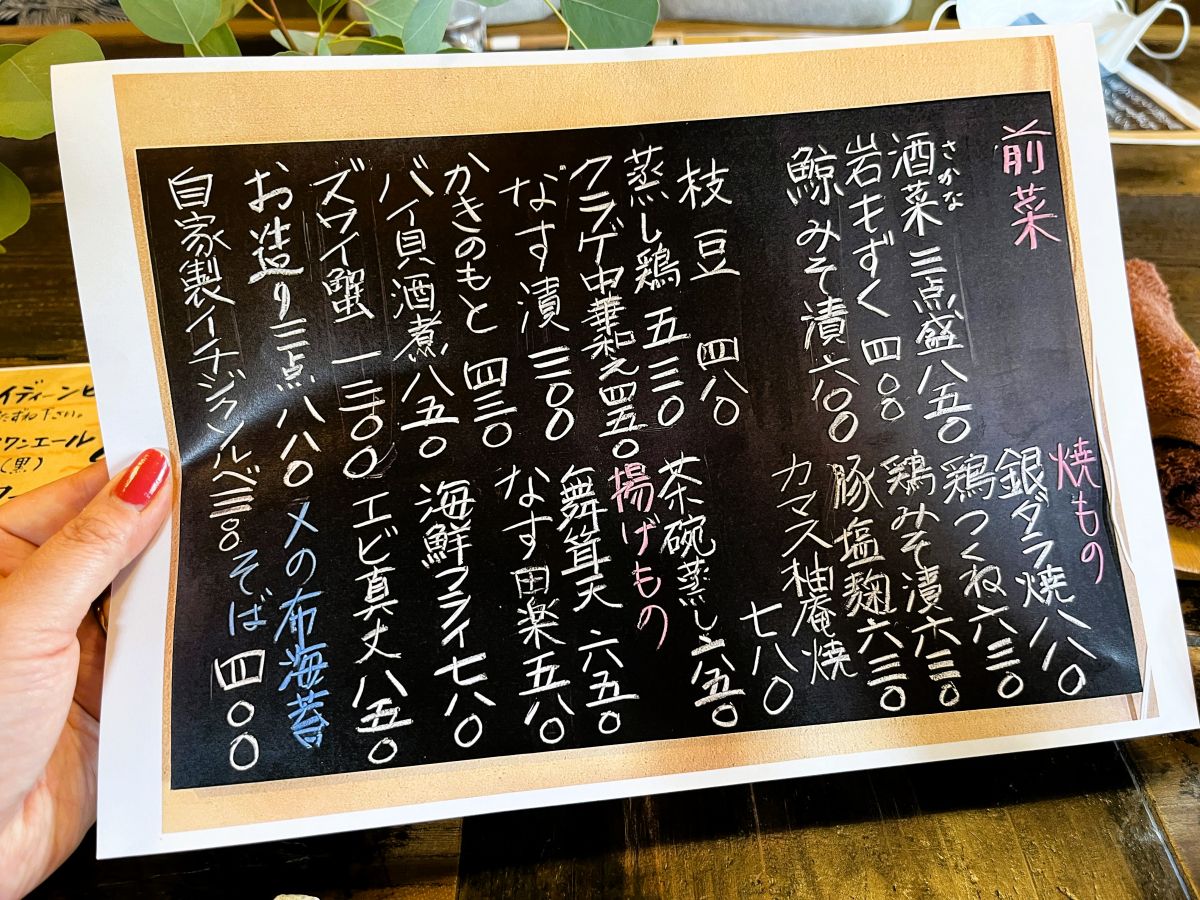 前菜
さかな
酒菜三点盛八五〇
岩もずく四〇〇
鯨みそ漬六〇〇
枝豆 四八〇
蒸し鶏 五三〇
クラゲ中華和え四五〇
なす漬 三〇〇
かきのもと 四三〇
バイ貝酒煮八五〇
ズワイ蟹 一三〇〇
お造り三点八八〇
自家製イチジクルベ
焼もの
銀ダラ焼八八〇
鶏つくね六三〇
鶏みそ漬六三〇
豚塩麹六三〇
カマス柚庵焼
七八〇
茶碗蒸し六五〇
揚げもの
舞茸天 六五〇
なす田楽五八〇
海鮮フライ七八〇
エビ真丈八五〇
〆の布海苔
そば 四〇〇
イディーンビ
たずね下さい。
ワンエール
(黒)